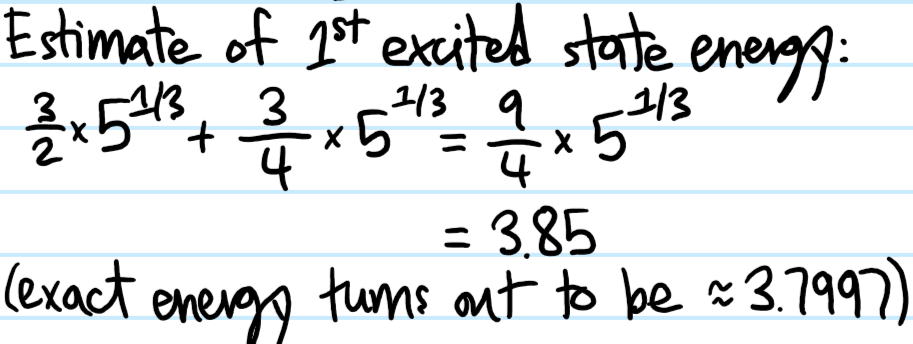 Estimate of 1st excited state energy:
3/2 × 5^1/3 + 3/4 × 5^1/3 = 9/4 × 5^1/3
= 3.85
(exact energy turns out to be ≈ 3.7997)